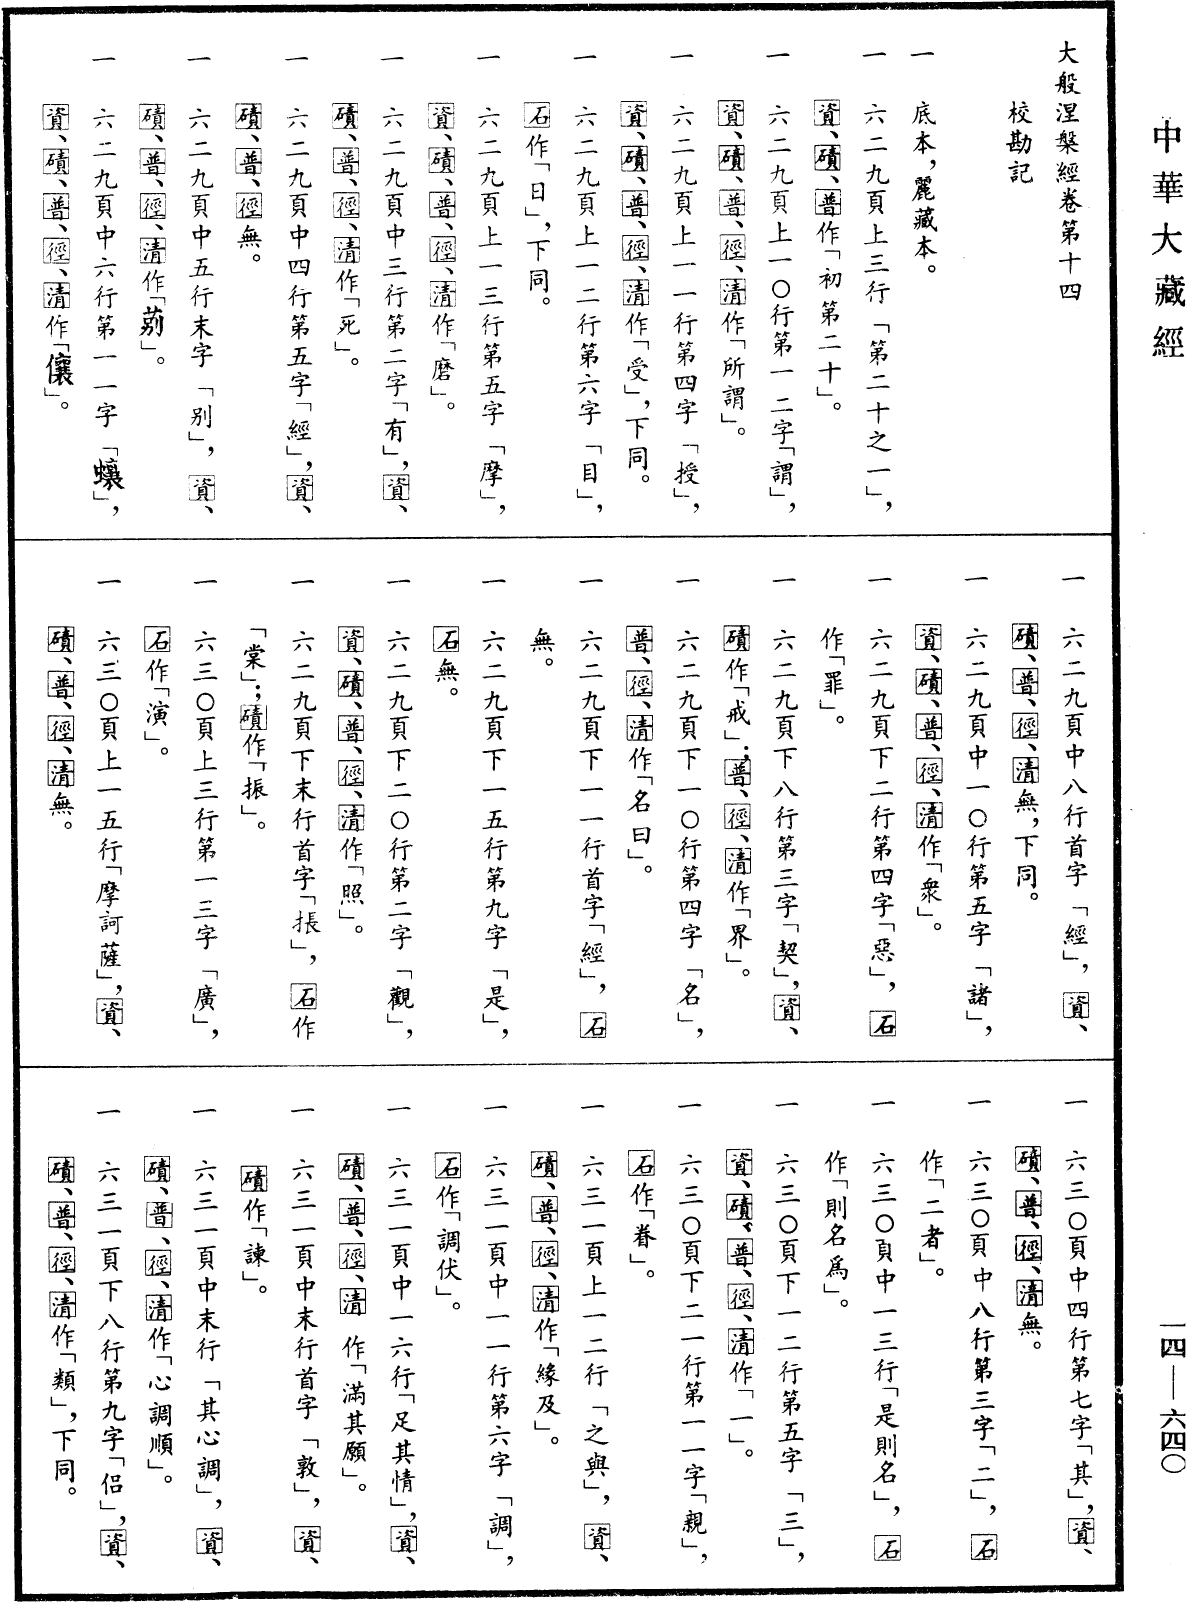 中華大藏經
大般涅槃經卷第十四
校勘記
一 底本，麗藏本。
一 六二九頁上三行「第二十之一」，
資、磧、普作「初第二十」。
一 六二九頁上一〇行第一二字「謂」，
資、磧、普、徑、清作「所謂」。
一 六二九頁上一一行第四字「授」，
資、磧、普、徑、清作「受」，下同。
一 六二九頁上一二行第六字「目」，
石作「日」，下同。
一 六二九頁上一三行第五字「摩」，
資、磧、普、徑、清作「磨」。
一 六二九頁中三行第二字「有」，資、
磧、普、徑、清作「死」。
一 六二九頁中四行第五字「經」，資、
磧、普、徑無。
一 六二九頁中五行末字「別」，資、
磧、普、徑、清作「莂」。
一 六二九頁中六行第一一字「蠰」，
資、磧、普、徑、清作「儴」。
一 六二九頁中八行首字「經」，資、
磧、普、徑、清無，下同。
一 六二九頁中一〇行第五字「諸」，
資、磧、普、徑、清作「衆」。
一 六二九頁下二行第四字「惡」，石
作「罪」。
一 六二九頁下八行第三字「契」，資、
磧作「戒」；普、徑、清作「界」。
一 六二九頁下一〇行第四字「名」，
普、徑、清作「名曰」。
一 六二九頁下一一行首字「經」，石
無。
一 六二九頁下一五行第九字「是」，
石無。
一 六二九頁下二〇行第二字「觀」，
資、磧、普、徑、清作「照」。
一 六二九頁下末行首字「掁」，石作
「棠」；磧作「振」。
一 六三〇頁上三行第一三字「廣」，
石作「演」。
一 六三〇頁上一五行「摩訶薩」，資、
磧、普、徑、清無。
一 六三〇頁中四行第七字「其」，資、
磧、普、徑、清無。
一 六三〇頁中八行第三字「二」，石
作「二者」。
一 六三〇頁中一三行「是則名」，石
作「則名爲」。
一 六三〇頁下一二行第五字「三」，
資、磧、普、徑、清作「一」。
一 六三〇頁下二一行第一一字「親」，
石作「眷」。
一 六三一頁上一二行「之與」，資、
磧、普、徑、清作「緣及」。
一 六三一頁中一一行第六字「調」，
石作「調伏」。
一 六三一頁中一六行「足其情」，資、
磧、普、徑、清作「滿其願」。
一 六三一頁中末行首字「敦」，資、
磧作「諫」。
一 六三一頁中末行「其心調」，資、
磧、普、徑、清作「心調順」。
一 六三一頁下八行第九字「侣」，資、
磧、普、徑、清作「類」，下同。
一四—六四〇